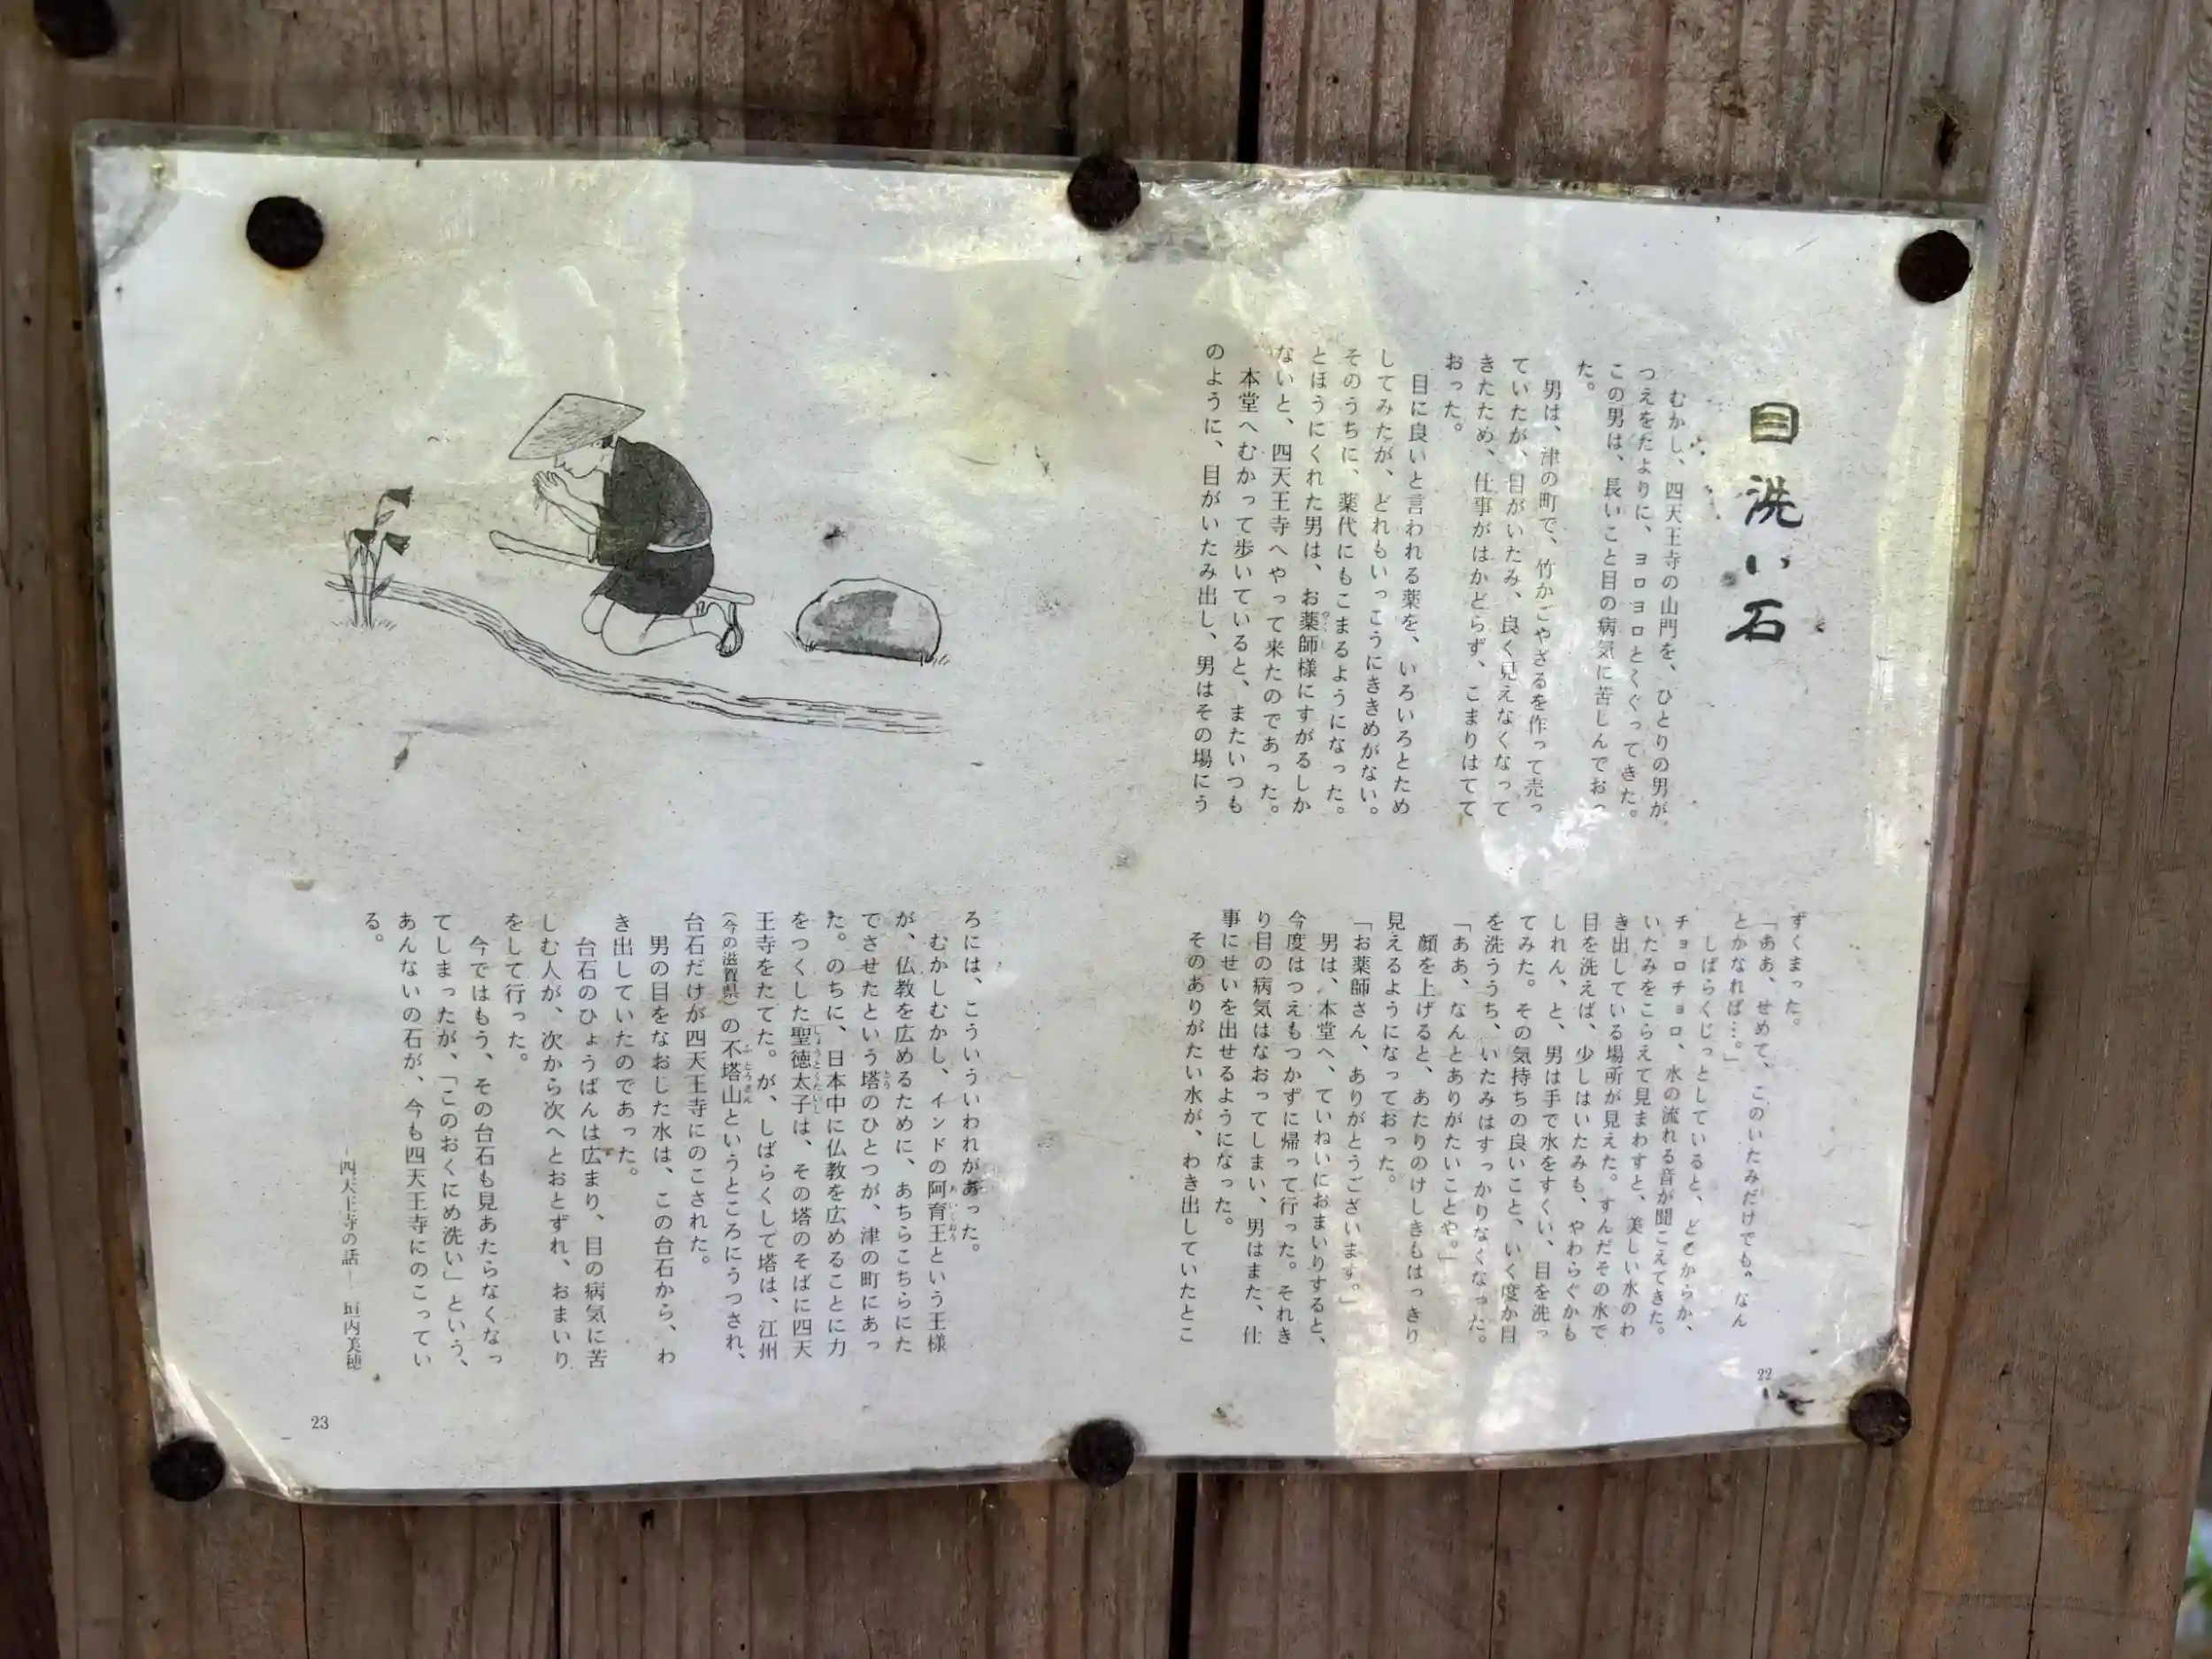 目洗い石
むかし、四天王寺の山門を、ひとりの男が、
つえをたよりに、ヨロヨロとくぐってきた。
この男は、長いこと目の病気に苦しんでおっ
た。
男は、津の町で、竹かごやざるを作って売っ
ていたが、目がいたみ、良く見えなくなって
きたため、仕事がはかどらず、こまりはてて
おった。
目に良いと言われる薬を、いろいろとため
してみたが、どれもいっこうにききめがない。
そのうちに、薬代にもこまるようになった。
とほうにくれた男は、お薬師様にすがるしか
ないと、四天王寺へやって来たのであった。
本堂へむかって歩いていると、またいつも
のように、目がいたみ出し、男はその場にう
ずくまった。
「ああ、せめて、このいたみだけでも、なん
とかなれば…。」
しばらくじっとしていると、どこからか、
チョロチョロ、水の流れる音が聞こえてきた。
いたみをこらえて見まわすと、美しい水のわ
き出している場所が見えた。すんだその水で
目を洗えば、少しはいたみも、やわらぐかも
しれん、と、男は手で水をすくい、目を洗っ
てみた。その気持ちの良いこと、いく度か目
を洗ううち、いたみはすっかりなくなった。
「ああ、なんとありがたいことや。」
顔を上げると、あたりのけしきもはっきり
見えるようになっておった。
「お薬師さん、ありがとうございます。」
男は、本堂へ、ていねいにおまいりすると、
今度はつえもつかずに帰って行った。それき
り目の病気はなおってしまい、男はまた、仕
事にせいを出せるようになった。
そのありがたい水が、わき出していたとこ
22
ろには、こういういわれがあった。
むかしむかし、インドの阿育王という王様
が、仏教を広めるために、あちらこちらにた
でさせたという塔のひとつが、津の町にあっ
た。のちに、日本中に仏教を広めることに力
をつくした聖徳太子は、その塔のそばに四天
王寺をたてた。が、しばらくして塔は、江州
(今の滋賀県)の不塔山というところにうつされ、
台石だけが四天王寺にのこされた。
男の目をなおした水は、この台石から、わ
き出していたのであった。
台石のひょうばんは広まり、目の病気に苦
しむ人が、次から次へとおとずれ、おまいり
をして行った。
今ではもう、その台石も見あたらなくなっ
てしまったが、「このおくにめ洗い」という、
あんないの石が、今も四天王寺にのこってい
る。
―四天王寺の話― 垣内美穂
23